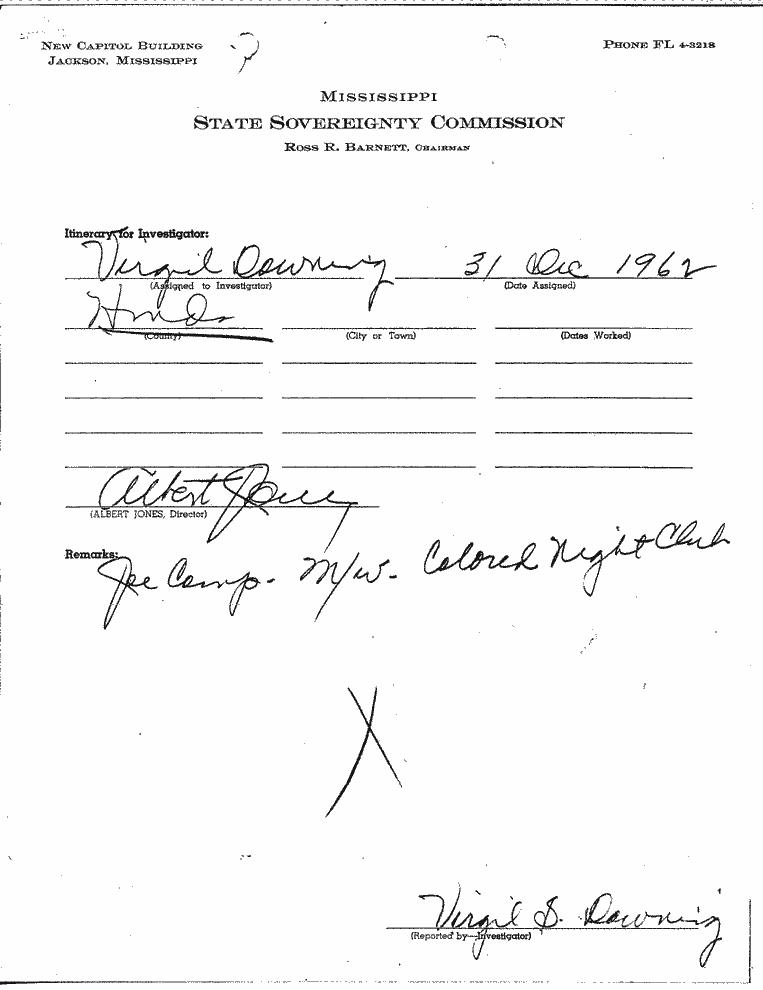 NEW CAPITOL BUILDING
JACKSON, MISSISSIPPI
PHONE FL 4-3218
MISSISSIPPI
STATE SOVEREIGNTY COMMISSION
ROSS R. BARNETT, CHAIRMAN
Itinerary for Investigator:
Virgil Downing 31 Dec 1962
(Assigned to Investigator) (Date Assigned)
Hinds
(County) (City or Town) (Dates Worked)
Albert Jones
(ALBERT JONES, Director)
Remarks:
Joe Camp - M/W - Colored Night Club
X
Virgil S. Downing
(Reported by—Investigator)